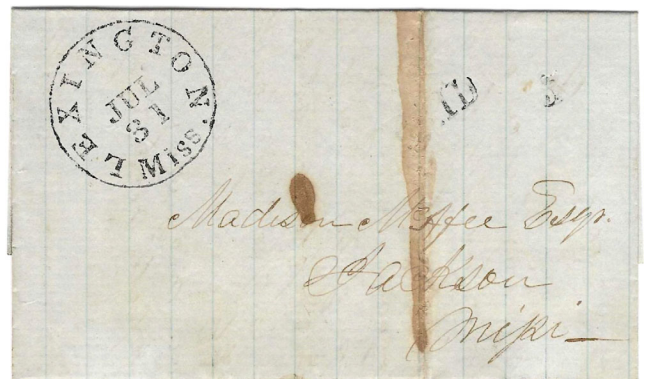 LEXINGTON MISS.
JUL
31
Madison McAfee Esqr.
Jackson
Miṗi